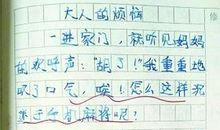 大人的烦恼
一进家门,就听见妈妈
的欢呼声:“胡了!”我重重地
叹了口气,唉!怎么这样沉
迷于打麻将呢?